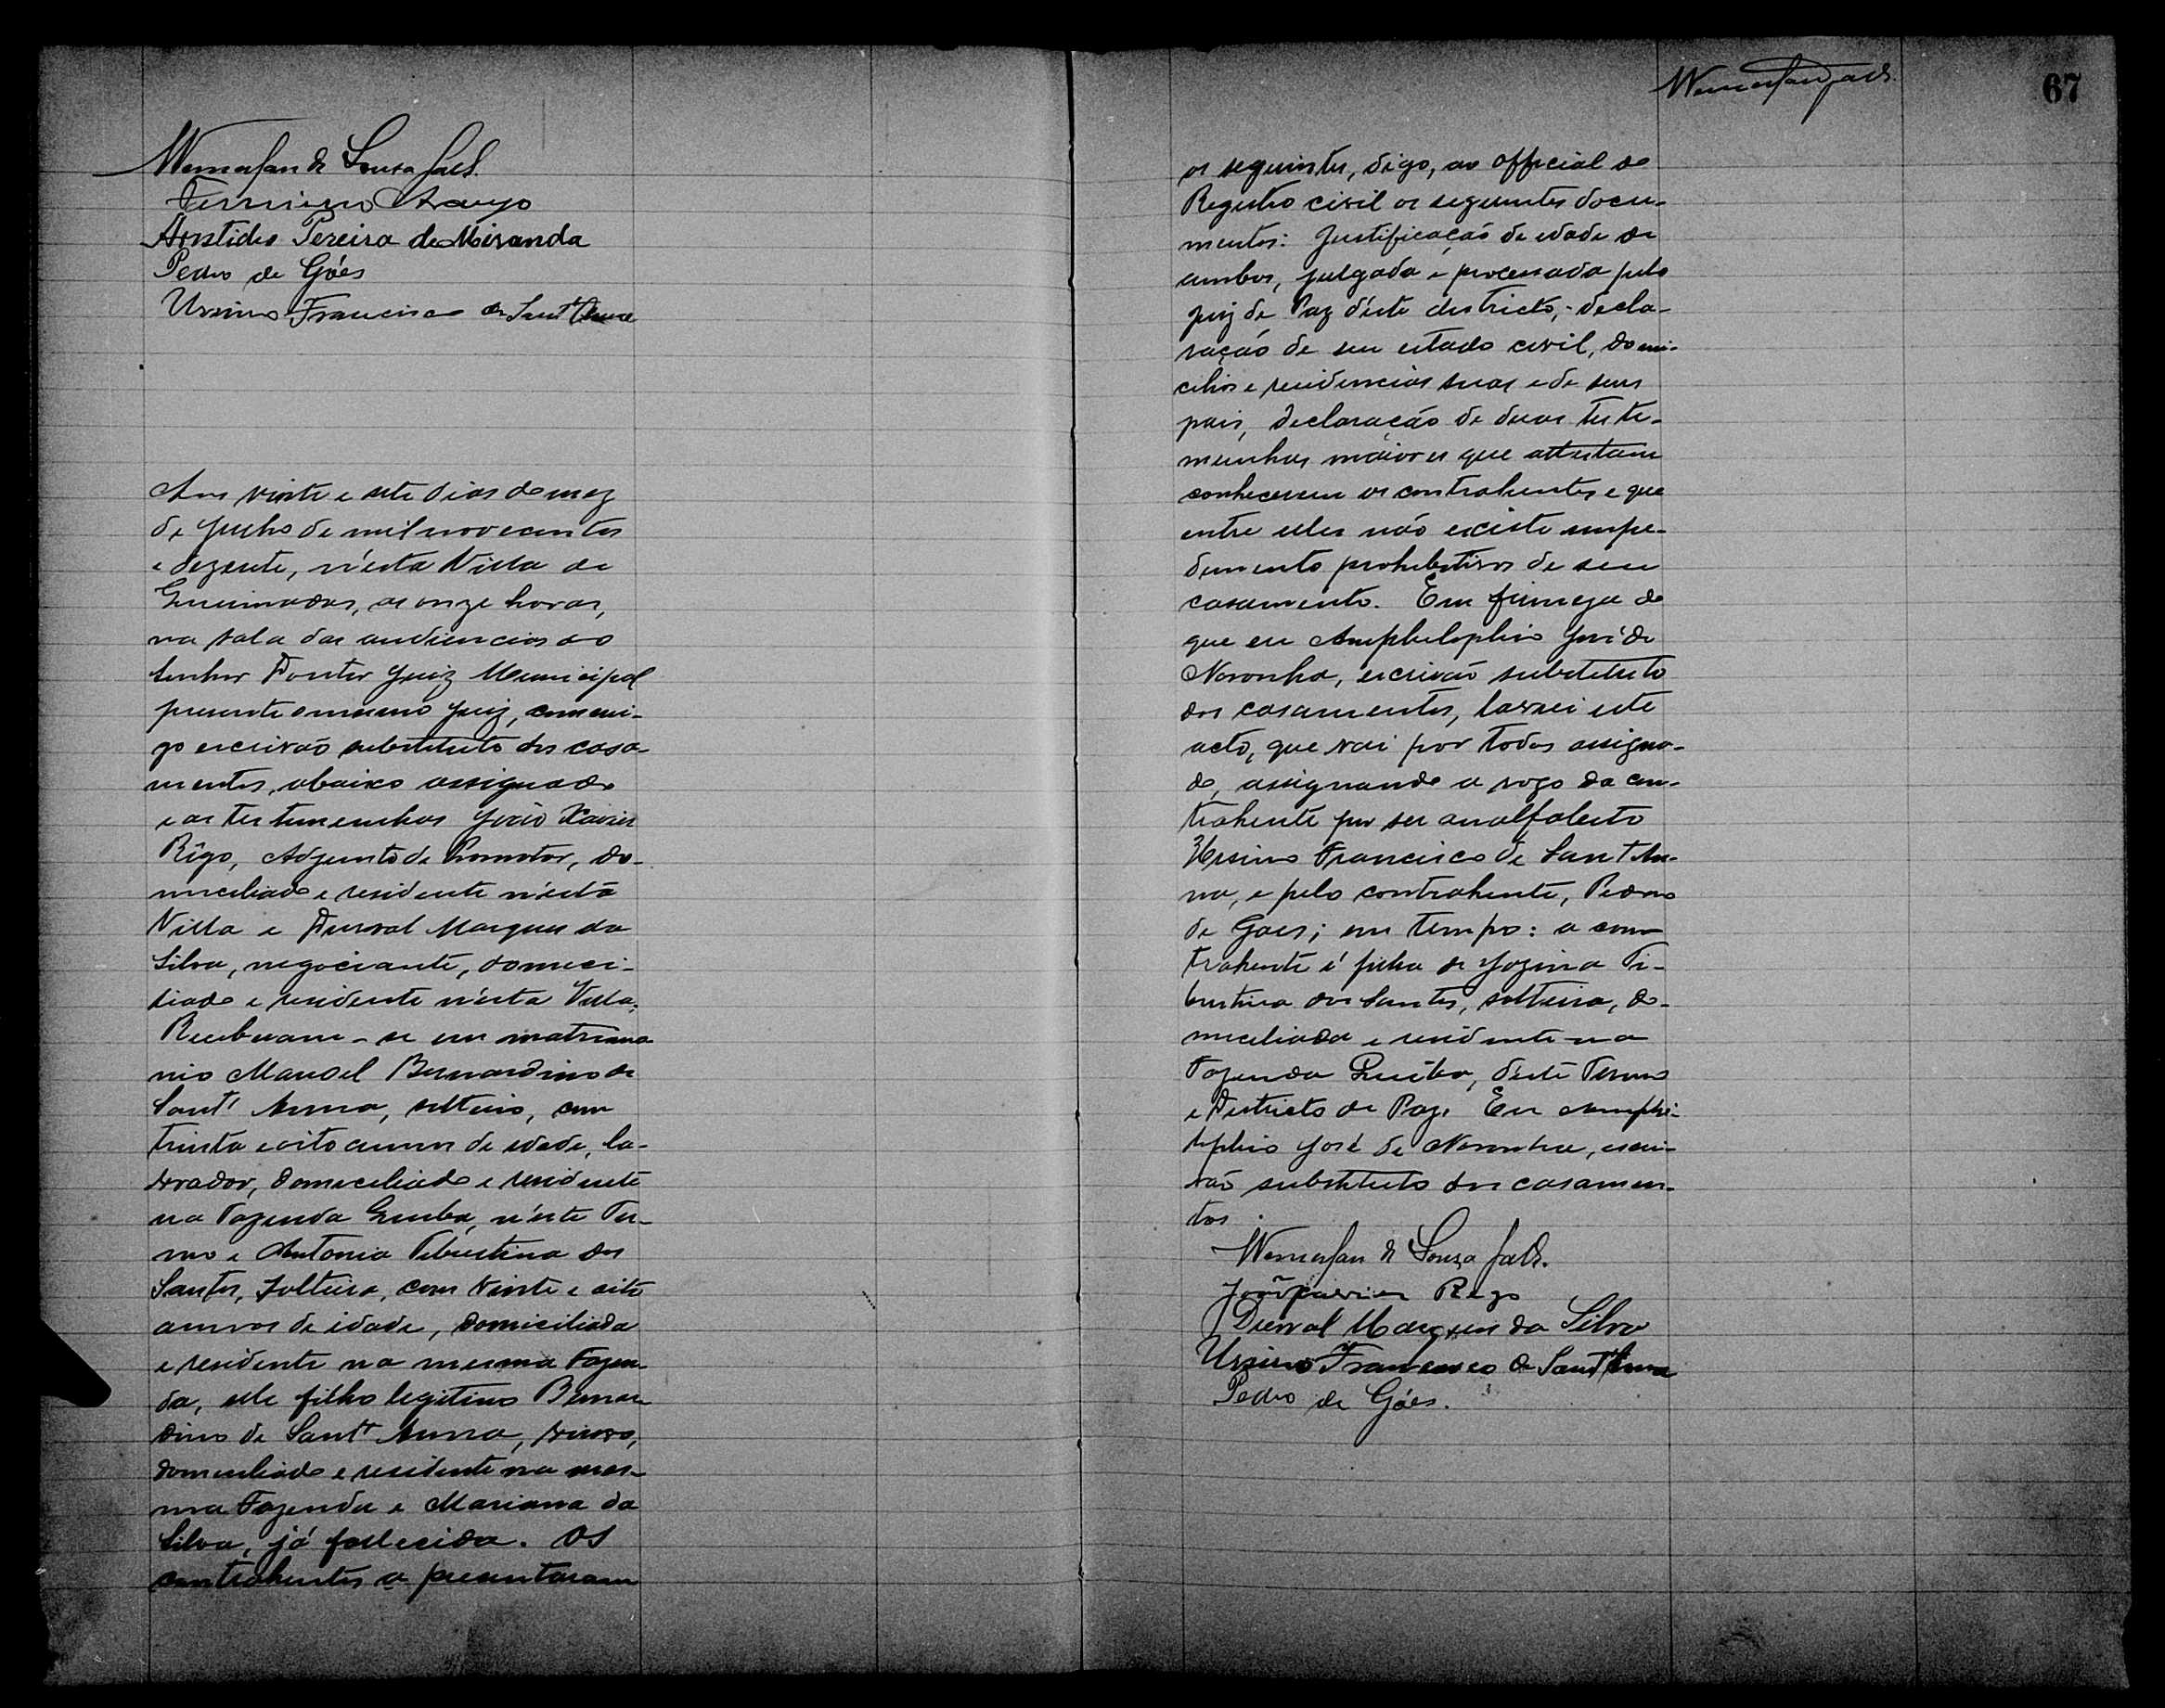 de Souza
Firmino Araujo
Aristides Pereira de Miranda
Pedro de Góes
Ursino Francisco de Sant'Anna
Aos vinte e sete dias do mez
de Julho de mil novecentos
e dezesete, n'esta Villa de
Queimadas, as onze horas,
na sala das audiencias do
Senhor Doutor Juiz Municipal
presente o mesmo Juiz, commi-
go escrivão substituto dos casa-
mentos, abaixo assignado
e as testemunhas João Xavier
Rêgo, Adjunto de Promotor, do-
miciliado e residente n'esta
Villa e Durval Marques da
Silva, negociante, domici-
liado e residente n'esta Villa,
Receberam-se em matrimo
nio Manoel Bernardino de
Sant' Anna, solteiro, com
trinta e oito annos de edade, la-
vrador, domiciliado e residente
na Fazenda n'este Ter-
mo e Antonia Tiburtina dos
Santos, solteira, com vinte e oito
annos de idade, domiciliada
e residente na mesma Fazen-
da, elle filho legitimo Bernar
dino de Sant' Anna, viuvo,
domiciliado e residente na mes-
ma Fazenda e Mariana da
Silva, já fallecida. Os
contrahentes apresentaram
67
os seguintes, digo, ao official do
Registro civil os seguintes docu-
mentos: Justificação de edade de
ambos, julgada e processada pelo
Juiz de Paz d'este districto, - decla-
ração de seu estado civil, domi-
cilios e residencias suas e de seus
pais, declaração de duas teste-
munhas maiores que attestam
conhecerem os contrahentes e que
entre elles não existe impe-
dimento prohibitivos de seu
casamento. Em firmeza do
que eu Amphilophio José de
Noronha, escrivão substituto
dos casamentos, lavrei este
acto, que vai por todos assigna-
do, assignando a rogo da con-
trahente por ser analfabeto
Ursino Francisco de Sant'An-
na, e pelo contrahente, Pedro
de Goes; em tempo: a con
trahente é filha de Jozina Ti-
burtina dos Santos, solteira, do-
miciliada e residente na
Fazenda d'este Termo
e Districto de Paz. Eu Amphi-
lophio José de Noronha, escri-
vão substituto dos casamen-
tos.
de Souza
João Xavier Rego
Durval Marques da Silva
Ursino Francisco de Sant'Anna
Pedro de Góes.